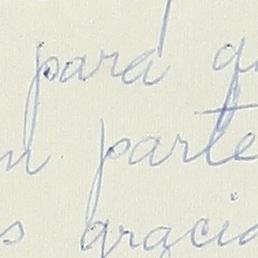 para q
n parte
s gracia